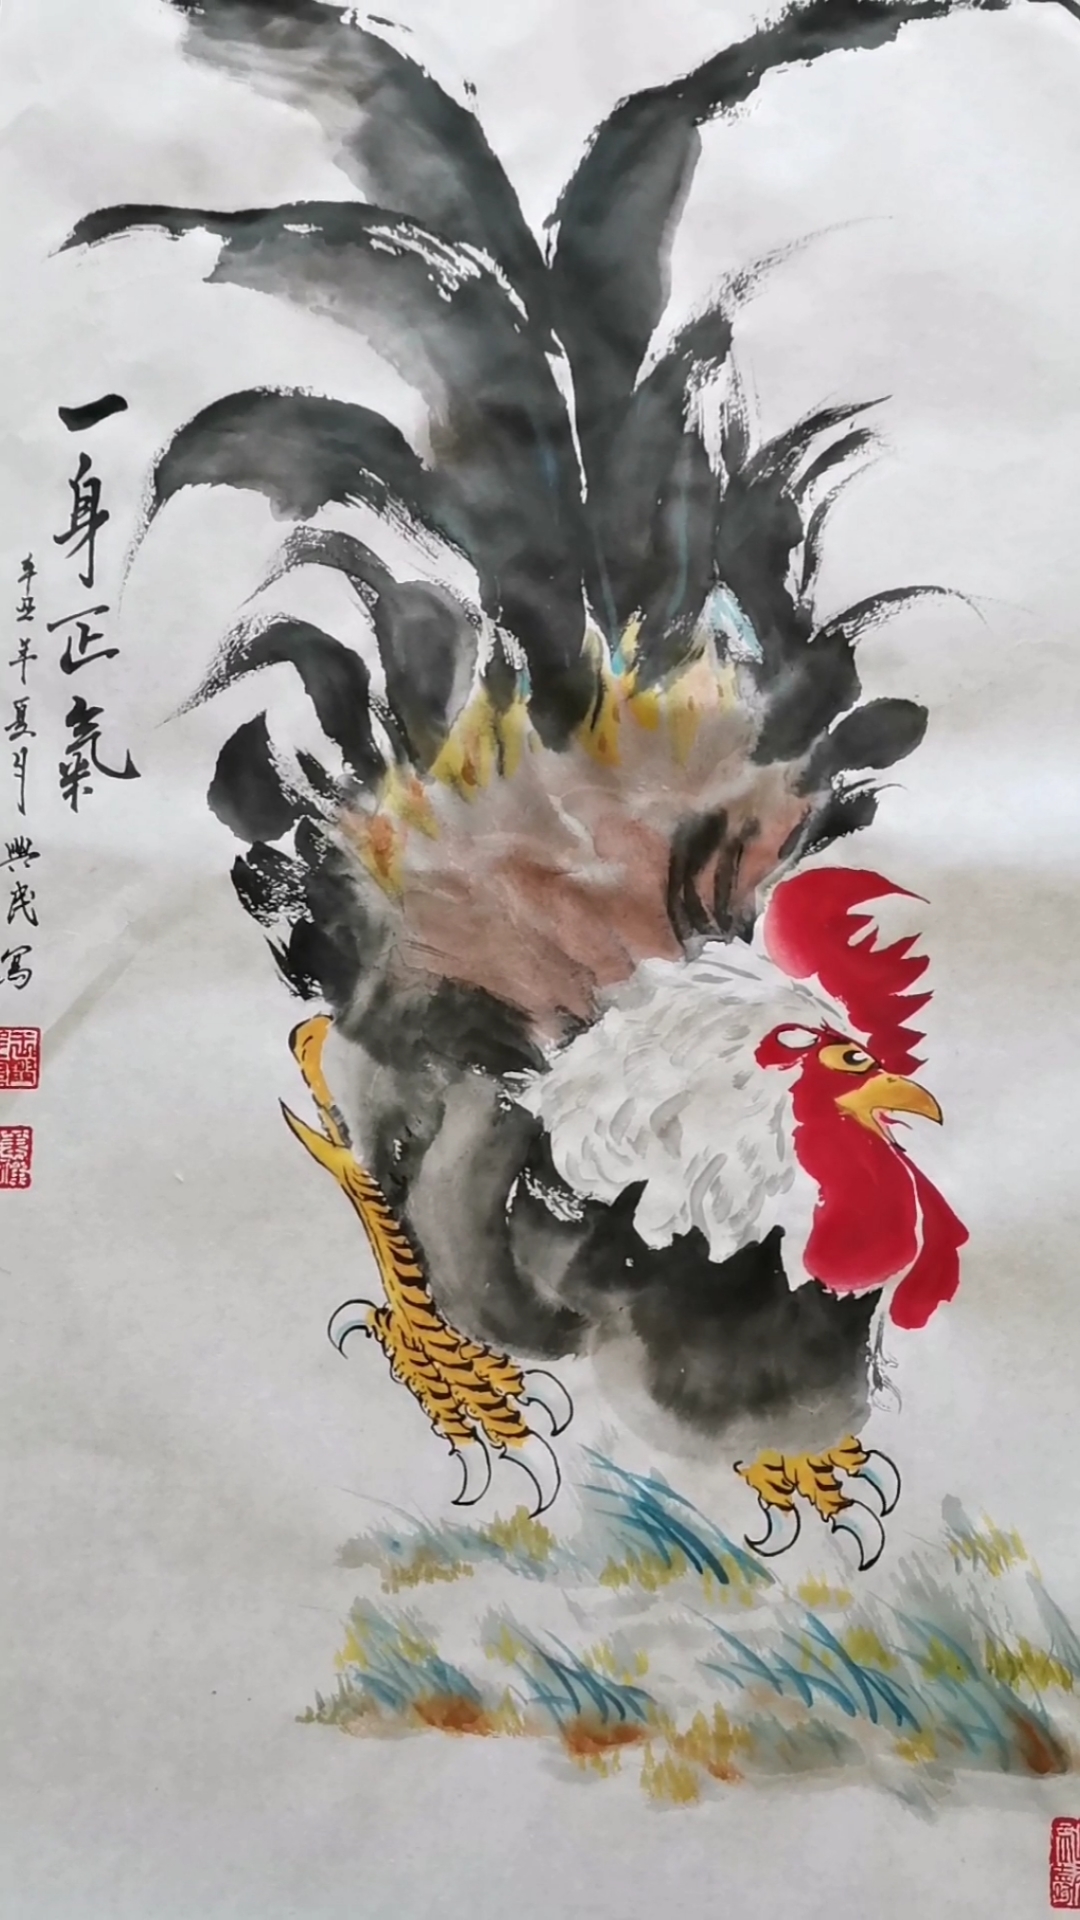 一身正氣
辛丑年夏月興民寫